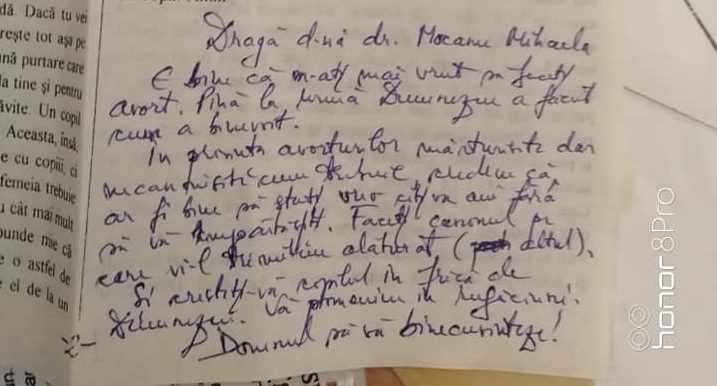 dă. Dacă tu vei
rește tot așa pe
nă purtare care
la tine și pentru
ăvite. Un copil
Aceasta, însă,
e cu copiii, ci
femeia trebuie
u cât mai mult
punde mie că
e o astfel de
el de la un
Dragă d-nă dr. Mocanu Mihaela
E bine că n-ați mai vrut să faceți
avort. Pînă la urmă Dumnezeu a făcut
cum a binevoit.
În privința avorturilor mărturisite dar
necanonisite cum trebuie, credem că
ar fi bine să stați vreo cîțiva ani fără
să vă împărtășiți. Faceți canonul pe
care vi-l trimitem alăturat (altul).
Și creșteți-vă copilul în frică de
Dumnezeu. Vă pomenim în rugăciuni.
Domnul să vă binecuvinteze!
honor 8 Pro